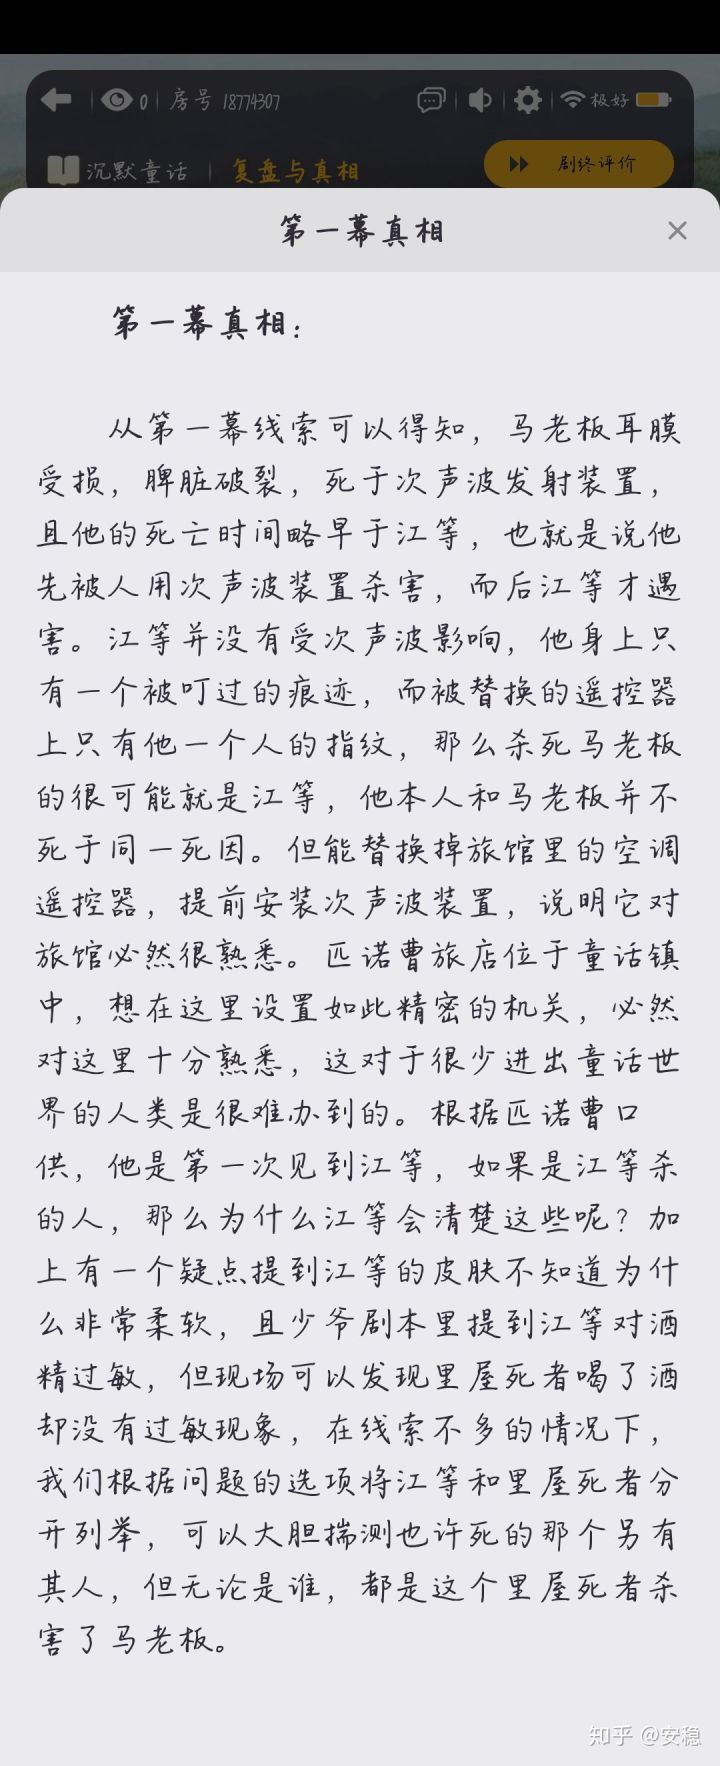 0 房号 18774307 极好
沉默童话 复盘与真相 剧终评价
第一幕真相
第一幕真相：
从第一幕线索可以得知，马老板耳膜
受损，脾脏破裂，死于次声波发射装置，
且他的死亡时间略早于江等，也就是说他
先被人用次声波装置杀害，而后江等才遇
害。江等并没有受次声波影响，他身上只
有一个被叮过的痕迹，而被替换的遥控器
上只有他一个人的指纹，那么杀死马老板
的很可能就是江等，他本人和马老板并不
死于同一死因。但能替换掉旅馆里的空调
遥控器，提前安装次声波装置，说明它对
旅馆必然很熟悉。匹诺曹旅店位于童话镇
中，想在这里设置如此精密的机关，必然
对这里十分熟悉，这对于很少进出童话世
界的人类是很难办到的。根据匹诺曹口
供，他是第一次见到江等，如果是江等杀
的人，那么为什么江等会清楚这些呢？加
上有一个疑点提到江等的皮肤不知道为什
么非常柔软，且少爷剧本里提到江等对酒
精过敏，但现场可以发现里屋死者喝了酒
却没有过敏现象，在线索不多的情况下，
我们根据问题的选项将江等和里屋死者分
开列举，可以大胆揣测也许死的那个另有
其人，但无论是谁，都是这个里屋死者杀
害了马老板。
知乎 @安稳